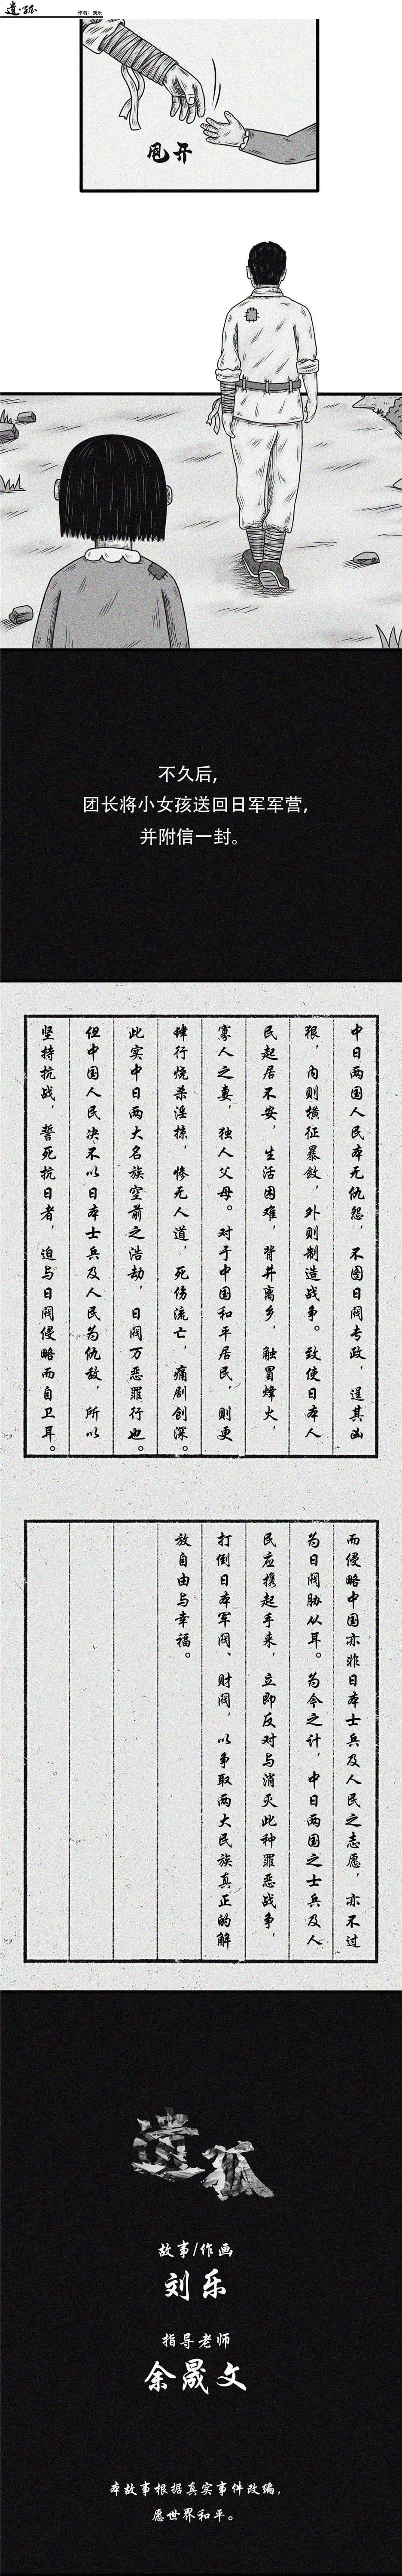 遗孤
作者：刘乐
甩开
不久后，
团长将小女孩送回日军军营，
并附信一封。
中日两国人民本无仇怨，不图日阀专政，逞其凶
狠，内则横征暴敛，外则制造战争。致使日本人
民起居不安，生活困难，背井离乡，触冒烽火，
寡人之妻，独人父母。对于中国和平居民，则更
肆行烧杀淫掠，惨无人道，死伤流亡，痛剧创深。
此实中日两大名族空前之浩劫，日阀万恶罪行也。
但中国人民决不以日本士兵及人民为仇敌，所以
坚持抗战，誓死抗日者，迫与日阀侵略而自卫耳。
而侵略中国亦非日本士兵及人民之志愿，亦不过
为日阀胁从耳。为今之计，中日两国之士兵及人
民应携起手来，立即反对与消灭此种罪恶战争，
打倒日本军阀、财阀，以争取两大民族真正的解
放自由与幸福。
遗孤
故事/作画
刘乐
指导老师
余晟文
本故事根据真实事件改编，
愿世界和平。